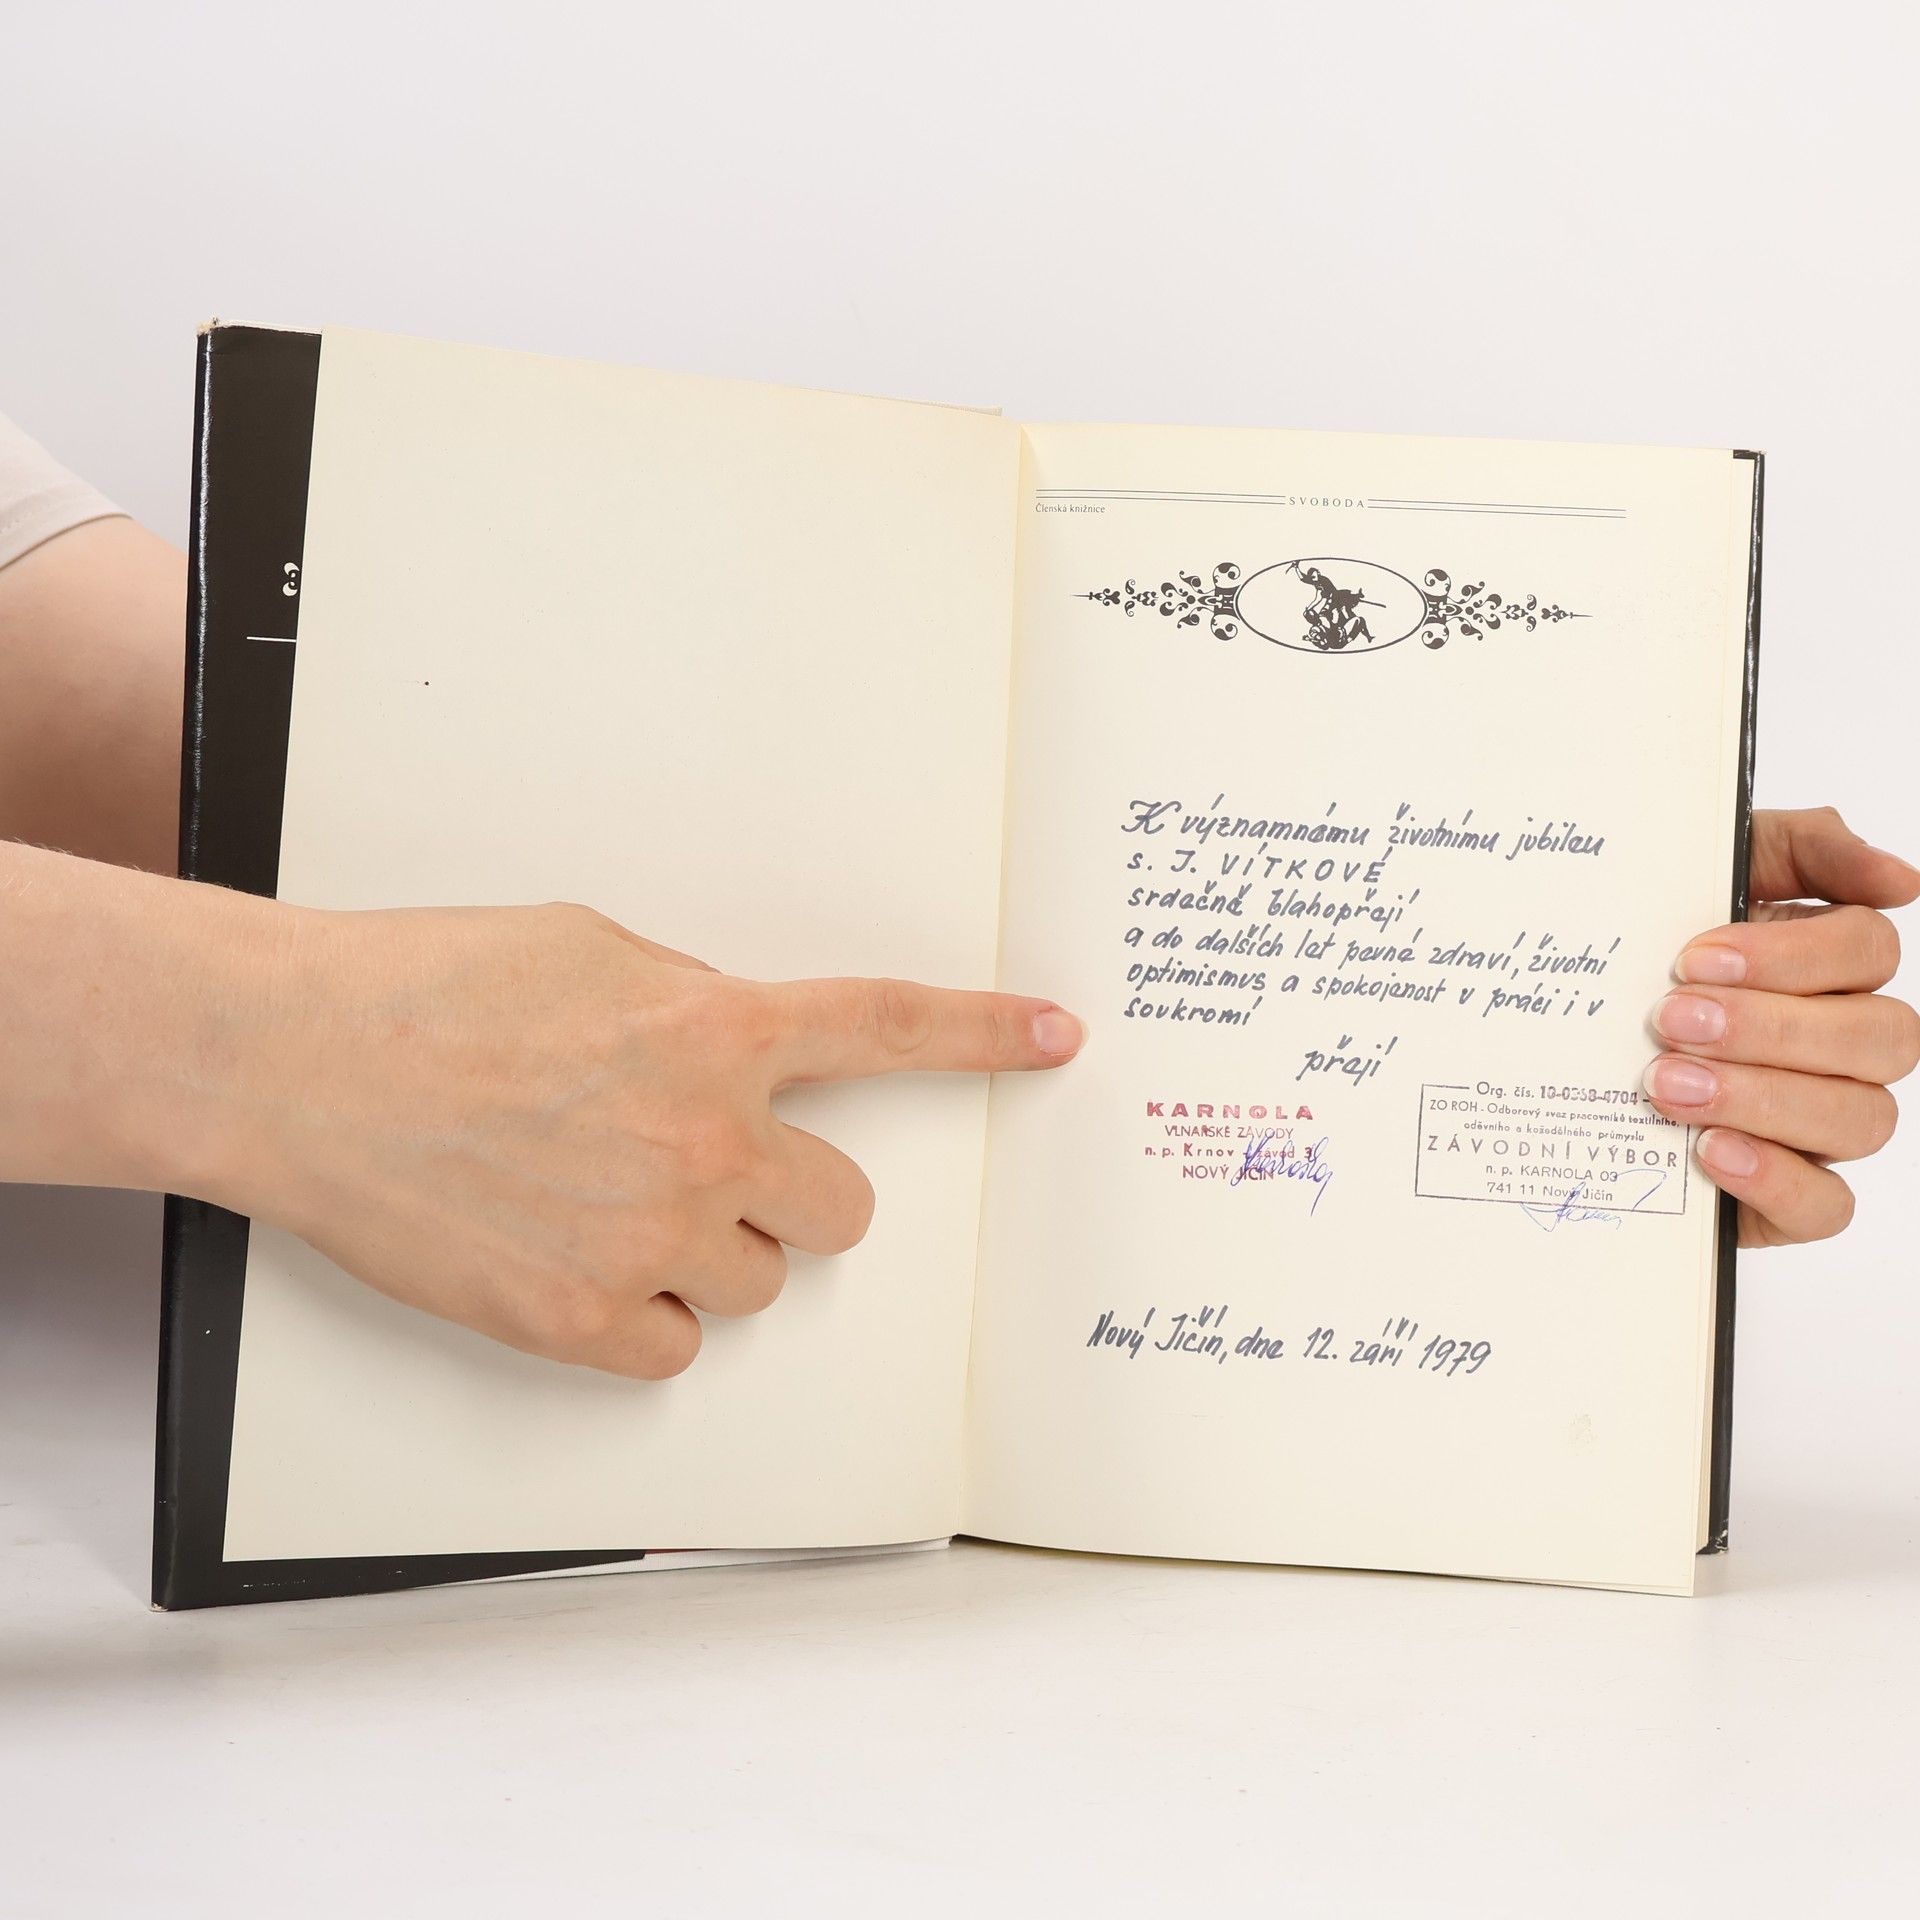 SVOBODA
Členská knižnice
K významnému životnímu jubileu
s. J. VÍTKOVÉ
srdečně blahopřejí
a do dalších let pevné zdraví, životní
optimismus a spokojenost v práci i v
soukromí
přejí
KARNOLA
VLNAŘSKÉ ZÁVODY
n. p. Krnov závod 3
NOVÝ JIČÍN
Org. čís. 10-0368-4704
ZO ROH - Odborový svaz pracovníků textilního,
oděvního a kožedělného průmyslu
ZÁVODNÍ VÝBOR
n. p. KARNOLA 03
741 11 Nový Jičín
Nový Jičín, dne 12. září 1979